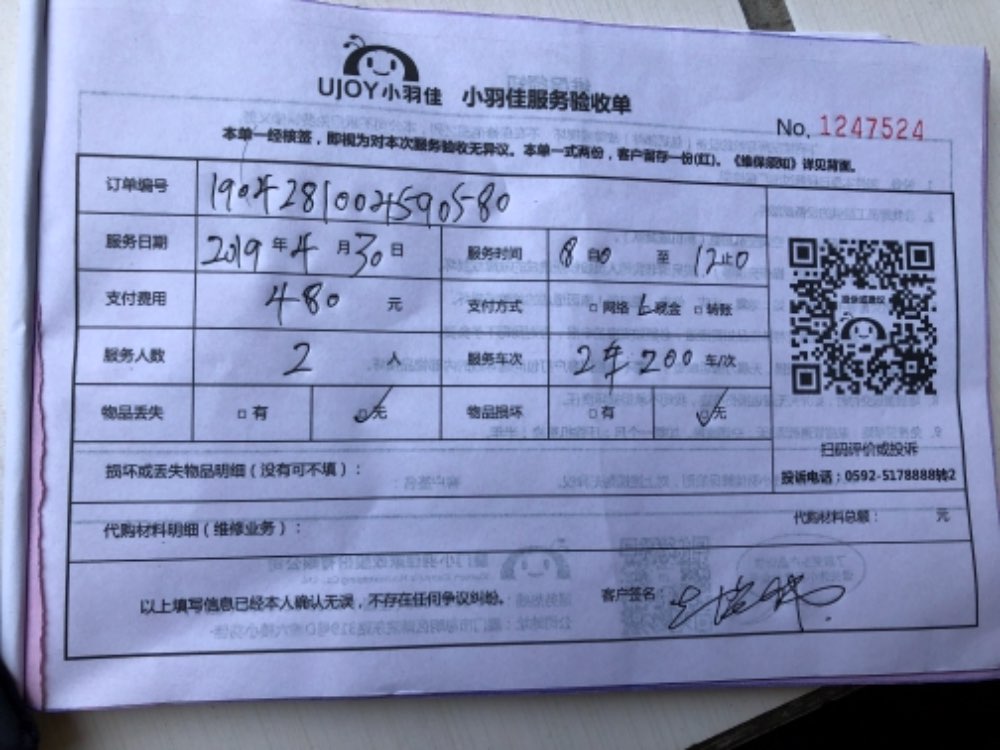 UJOY小羽佳 小羽佳服务验收单
No. 1247524
本单一经核签，即视为对本次服务验收无异议。本单一式两份，客户留存一份(红)。《维保须知》详见背面。
订单编号 19042810024590580
服务日期 2019 年 4 月 30 日 服务时间 8 自0 至 12止0
支付费用 480 元 支付方式 □ 网络 □ 现金 □ 转账
服务人数 2 人 服务车次 2车200 车/次
物品丢失 □ 有 ☑ 无 物品损坏 □ 有 ☑ 无
扫码评价或投诉
投诉电话：0592-5178888转2
损坏或丢失物品明细（没有可不填）：
代购材料明细（维修业务）： 代购材料总额： 元
以上填写信息已经本人确认无误，不存在任何争议纠纷。 客户签名：